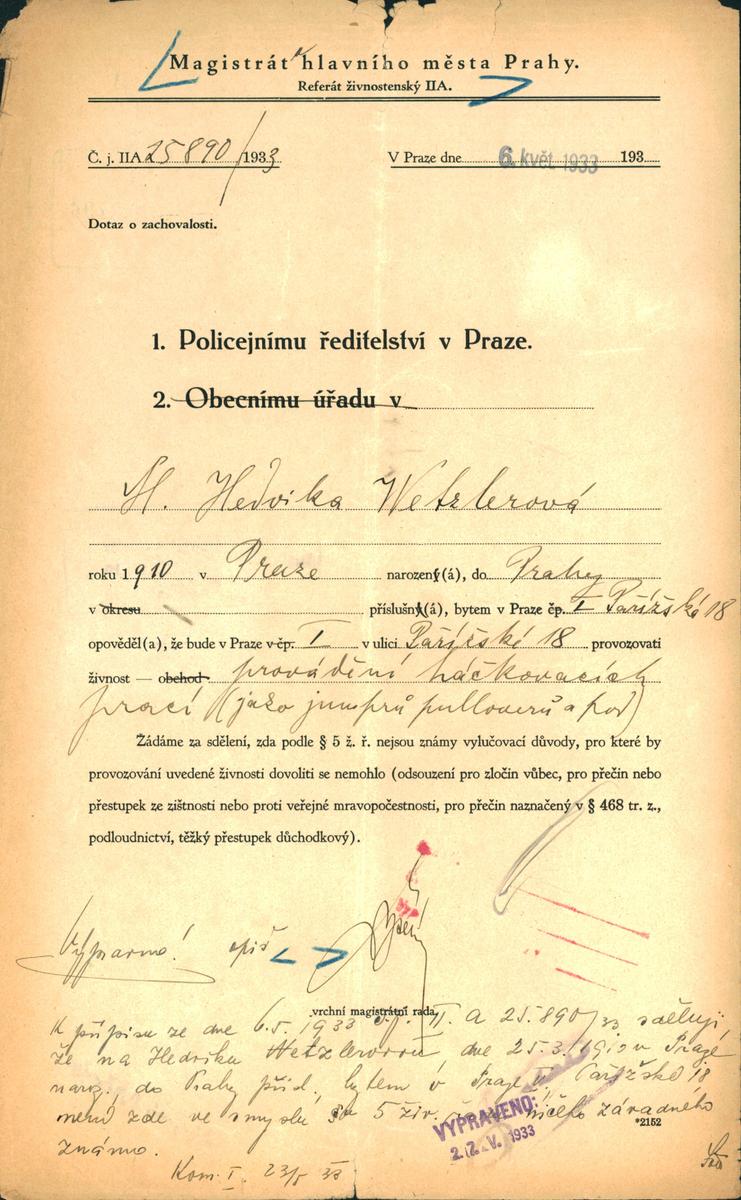 Magistrát hlavního města Prahy.
Referát živnostenský IIA.
Č. j. IIA 25890/1933
V Praze dne 6. květ 1933 193
Dotaz o zachovalosti.
1. Policejnímu ředitelství v Praze.
2. Obecnímu úřadu v
Hedvika Wetzlerová
roku 1910 v Praze narozený(á), do Prahy
v okresu příslušný(á), bytem v Praze čp. I Pařížská 18
opověděl(a), že bude v Praze v čp. I v ulici Pařížské 18 provozovati
živnost — obchod provádění háčkovacích
prací (jako jumprů pulloverů a pod)
Žádáme za sdělení, zda podle § 5 ž. ř. nejsou známy vylučovací důvody, pro které by
provozování uvedené živnosti dovoliti se nemohlo (odsouzení pro zločin vůbec, pro přečin nebo
přestupek ze zištnosti nebo proti veřejné mravopočestnosti, pro přečin naznačený v § 468 tr. z.,
podloudnictví, těžký přestupek důchodkový).
opis
vrchní magistrátní rada.
K přípisu ze dne 6.5.1933 II. A 25.890/33 sděluji,
že na Hedviku Wetzlerovou, dne 25.3.1910 v Praze
naroz., do Prahy přísl., bytem v Praze Pařížská 18
není zde ve smyslu § 5 živ. ničeho závadného
známo.
VYPRAVENO:
22. V. 1933
*2152
Kom. I. 23/5 33